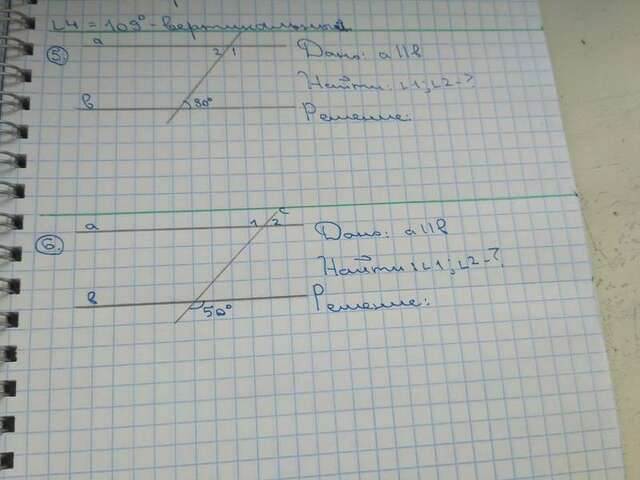 ∠4 = 109° - вертикальные
5. a 2 1 Дано: a||b
Найти: ∠1; ∠2-?
b 80° Решение:
c
6. a 1 2 Дано: a||b
Найти: ∠1; ∠2-?
b 50° Решение: